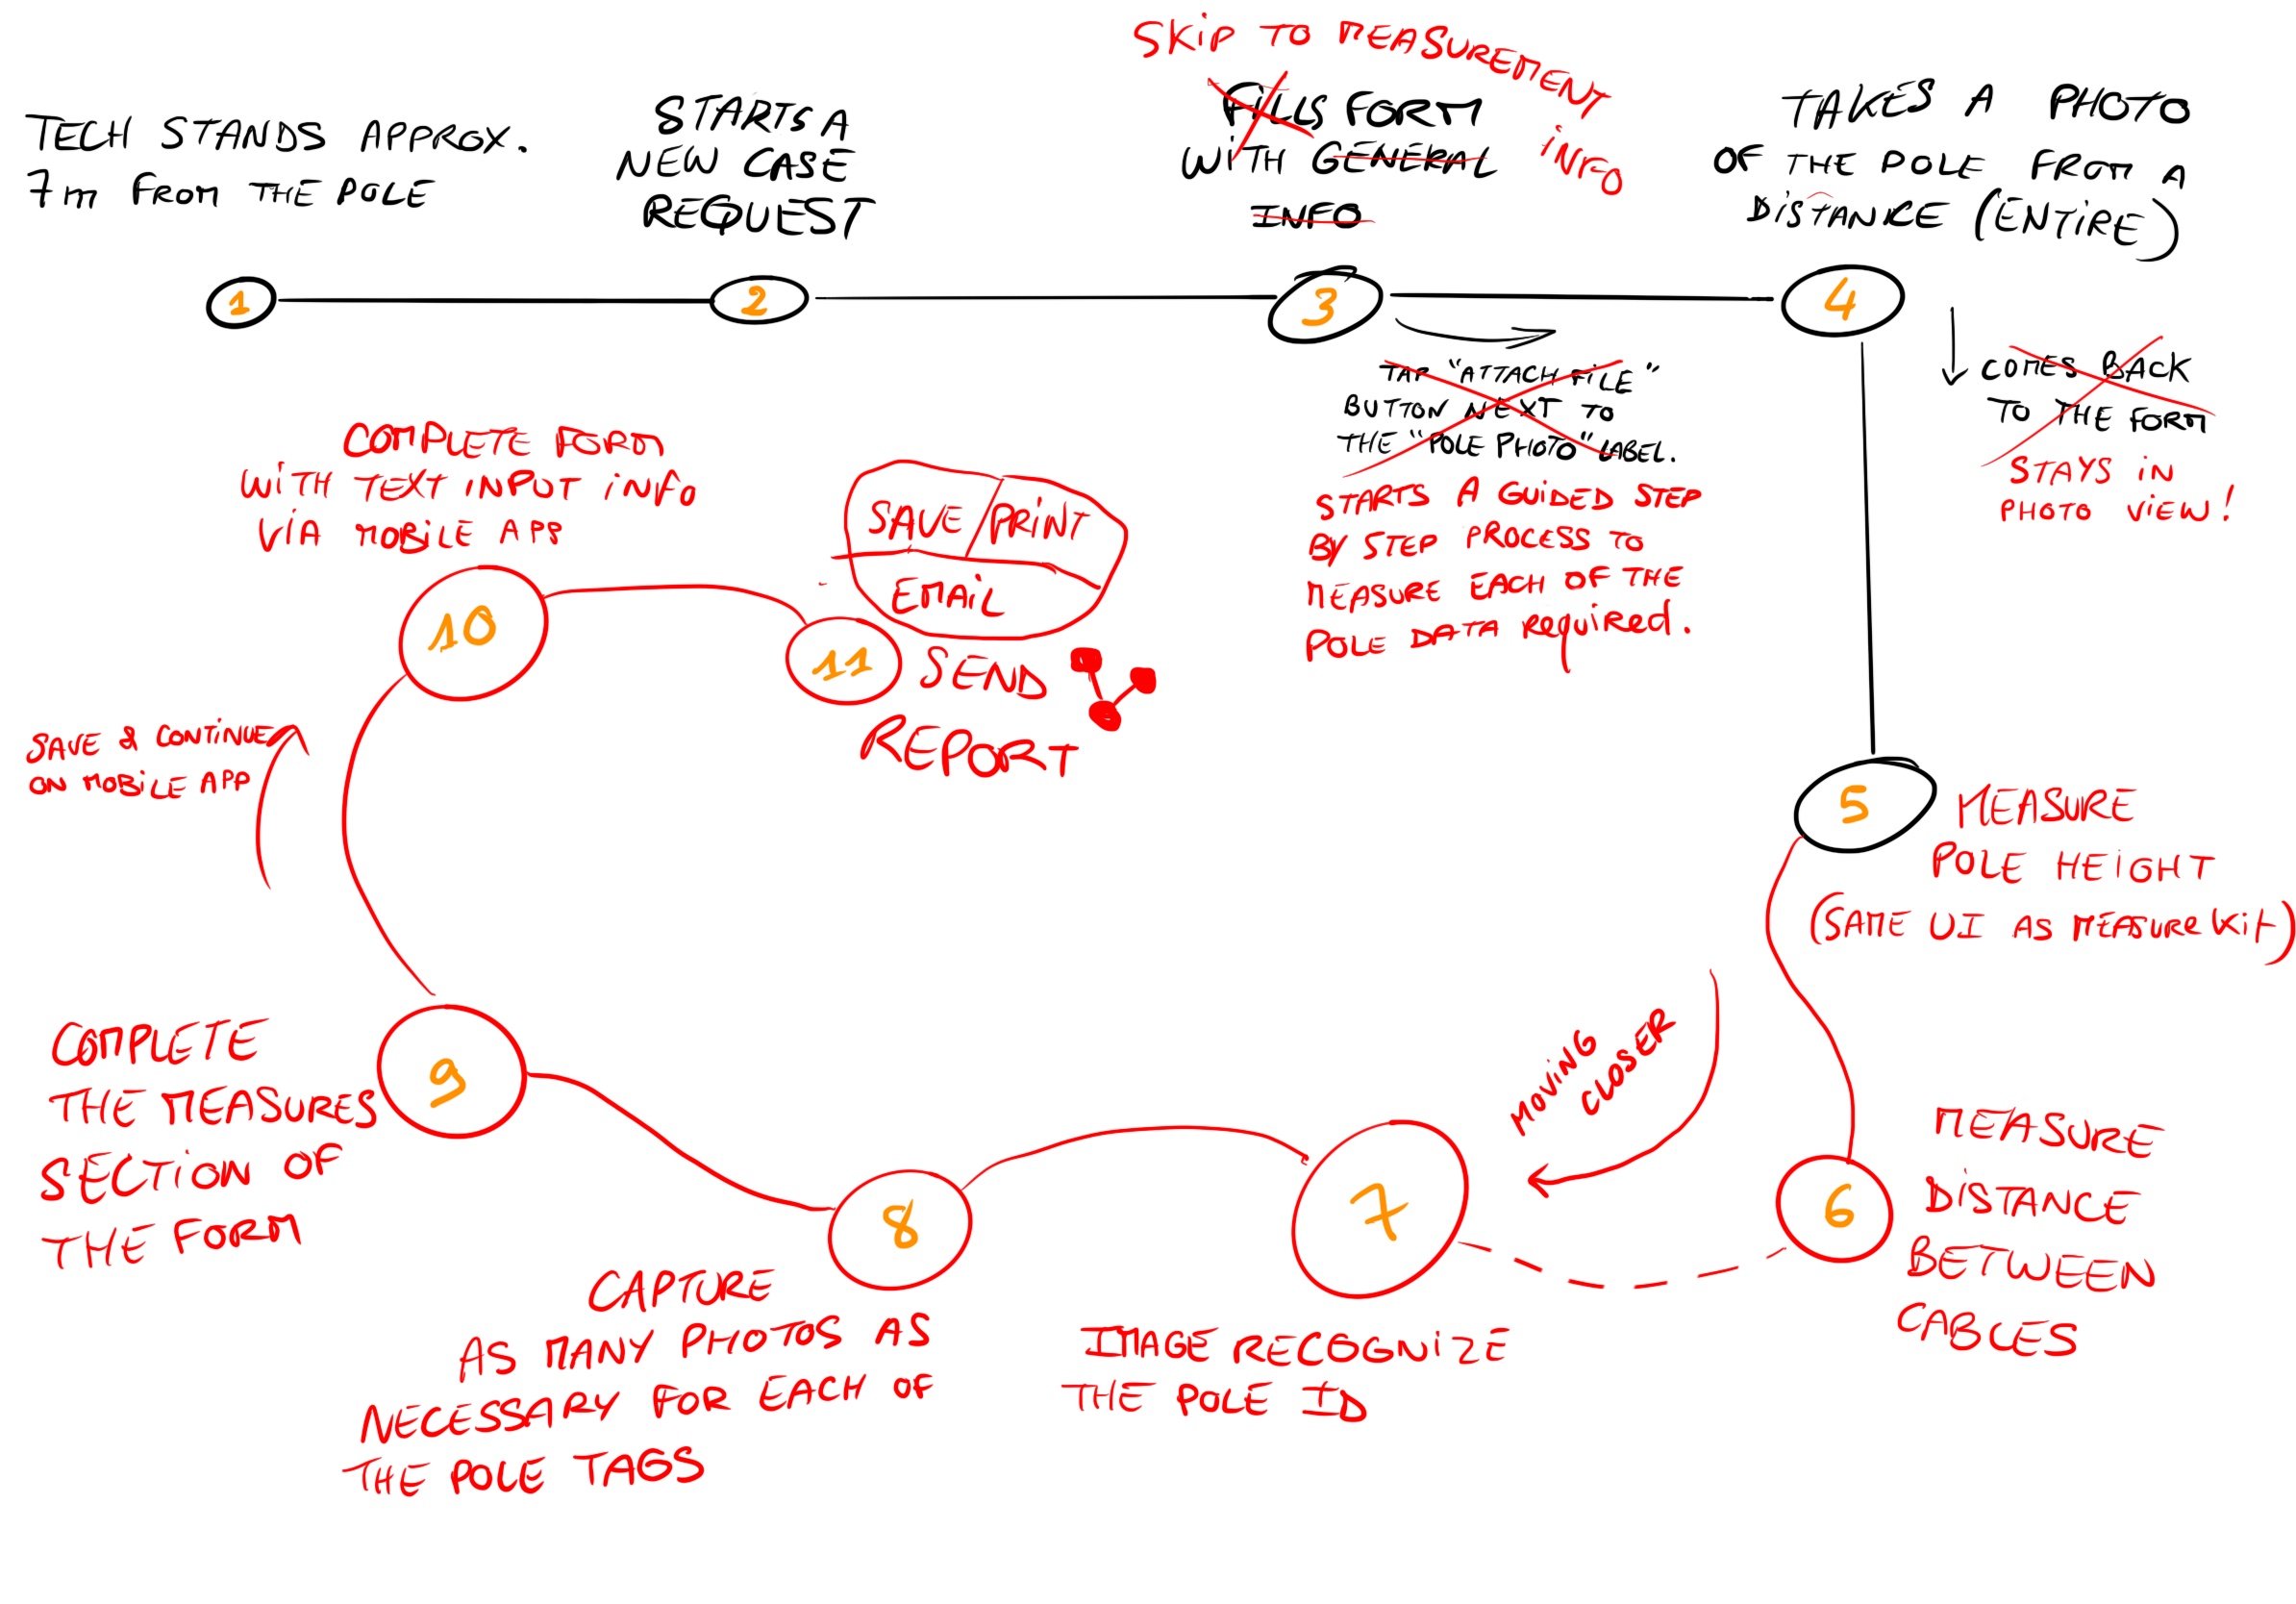 SKIP TO MEASUREMENT
INFO
TECH STANDS APPROX.
7m FROM THE POLE
STARTS A
NEW CASE
REQUEST
FILLS FORM
WITH GENERAL
INFO
TAKES A PHOTO
OF THE POLE FROM A
DISTANCE (ENTIRE)
1
2
3
4
TAP "ATTACH FILE"
BUTTON NEXT TO
THE "POLE PHOTO" LABEL.
STARTS A GUIDED STEP
BY STEP PROCESS TO
MEASURE EACH OF THE
POLE DATA required.
COMES BACK
TO THE FORM
STAYS IN
PHOTO VIEW!
5
MEASURE
POLE HEIGHT
(SAME UI AS MEASURE Kit)
6
MEASURE
DISTANCE
BETWEEN
CABLES
MOVING
CLOSER
7
IMAGE RECOGNIZE
THE POLE ID
8
CAPTURE
AS MANY PHOTOS AS
NECESSARY FOR EACH OF
THE POLE TAGS
9
COMPLETE
THE MEASURES
SECTION OF
THE FORM
SAVE & CONTINUE
ON MOBILE APP
10
COMPLETE FORM
WITH TEXT INPUT INFO
VIA MOBILE APP
11
SEND
REPORT
SAVE / PRINT
EMAIL